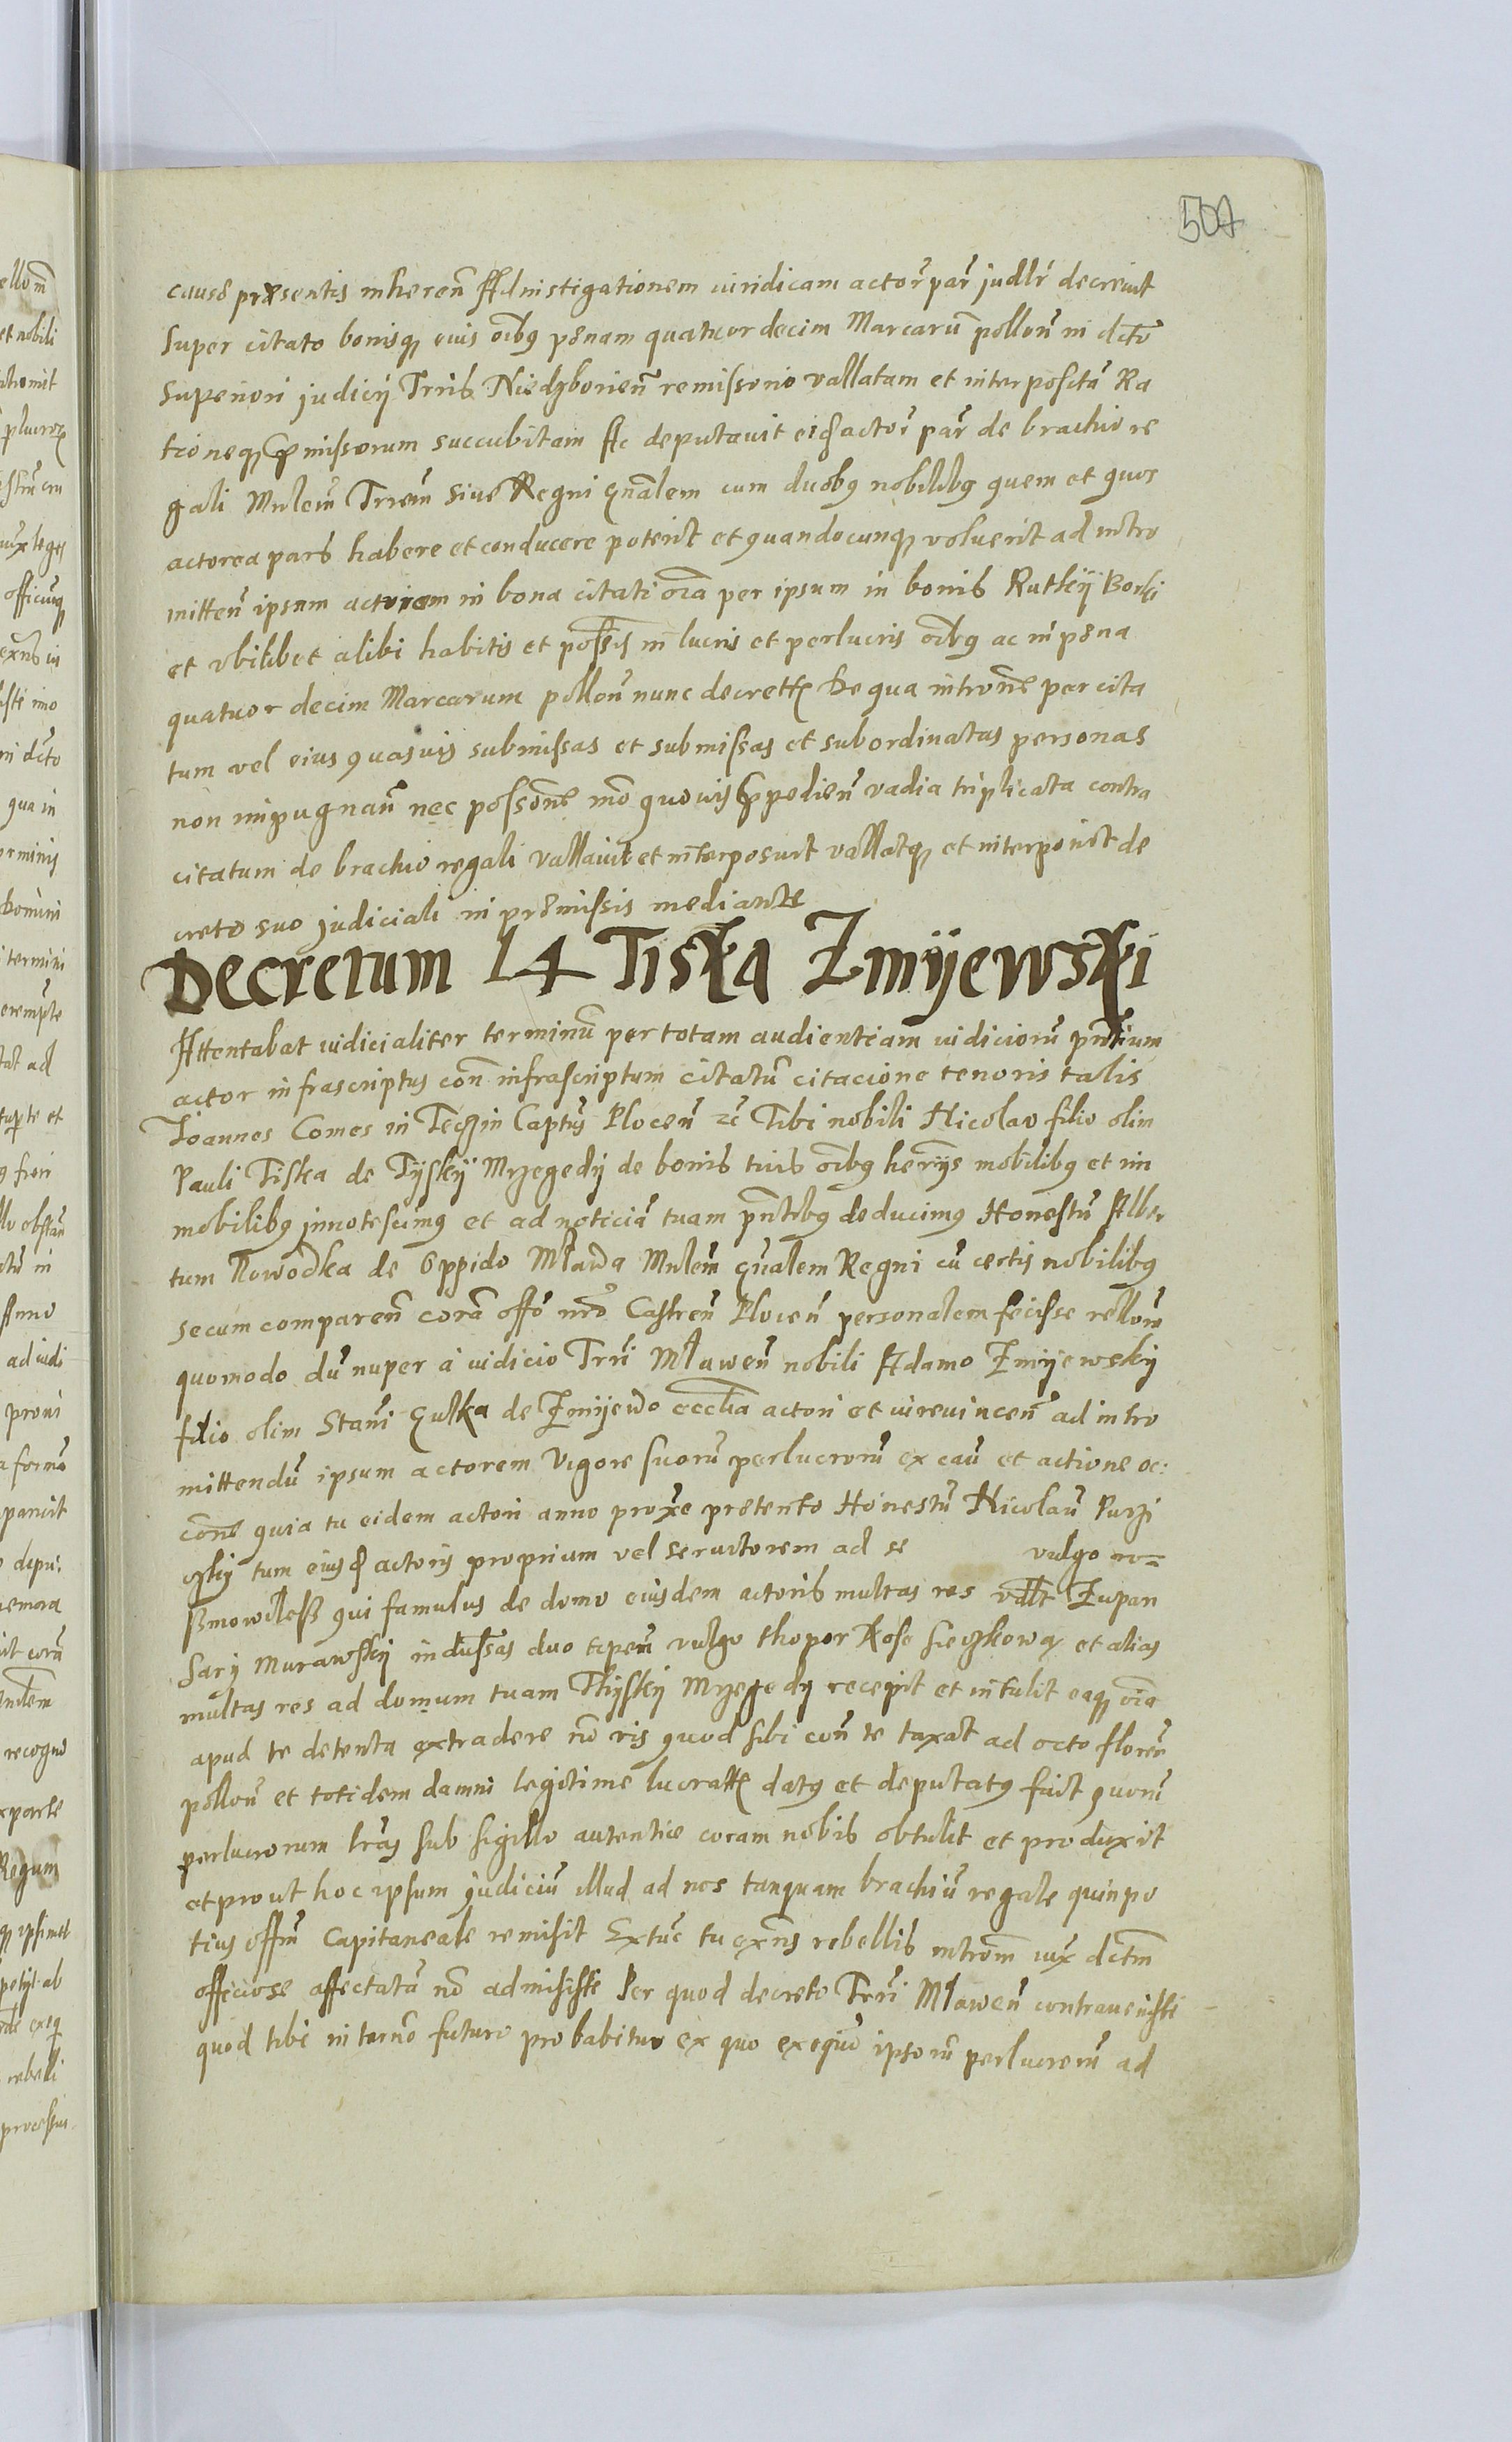 507
causę pręsentis inheren̄ Ad instigationem iuridicam actor̄ par̄ judłr decreuit
super citato bonisq̨ eius oĩbꝰ pęnam quatuor decim Marcarū pollon̄ in dcto
superiori judicij Trris Niedzborien̄ remissorio vallatam et interpositā Ra
tioneq̨ p̄missorum succubitam Ac deputauit eidē actor̄ par̄ de brachio re
gali Mnlem̄ Trrem̄ siue Regni gn̄alem cum duobꝰ nobilibꝰ quem et quos
actorea pars habere et conducere poterit et quandocunq̨ voluerit ad intro
mitten̄ ipsum actorem in bona citati oīa per ipsum in bonis Rutkÿ Borki
et vbilibet alibi habitis et possis in lucris et perlucris oībꝰ ac in pęna
quatuor decim Marcarum pollon̄ nunc decrettę De qua intrōne per cita
tum vel eius quasuis submissas et submissas et subordinatas personas
non impugnan̄ nec possōne mō quouis p̄pedien̄ vadia triplicata contra
citatum de brachio regali vallauit et interposuit vallatq̨ et interponit de
creto suo judiciali in pręmissis mediante
Decretum 14 Tiska Zmijewski
Attentabat iudicialiter terminū per totam audientiam iudiciorū pn̄tium
actor infrascriptus con̄ infrascriptum citatū citacione tenoris talis
Joannes Comes in Teczin Captūs Plocen̄ zc̄ Tibi nobili Nicolao filio olim
Pauli Tiska de Tyskÿ Mzegedy de bonis tuis oībꝰ herrijs mobilibꝰ et im
mobilibꝰ jnnotescimꝰ et ad noticiā tuam pn̄tibꝰ deducimꝰ Honestū Alber
tum Nowodka de Oppido Mlawa Mnlem̄ gn̄alem Regni cū certis nobilibꝰ
secum comparen̄ corā offō nrō Castren̄ Plocen̄ personalem fecisse rellom̄
quomodo dū nuper à iudicio Trri Mlawen̄ nobili Adamo Zmijewsky
filio olim Stani Gulka de Zmijewo ecclīa actori et iureuincen̄ ad intro
mittendū ipsum actorem Vigore suorū perlucrorū ex cau et actione oc:
cōne quia tu eidem actori anno proxe pretento Honestū Nicolaū Purzi
czky tum eiusd actoris proprium vel seruitorem ad se vulgo ro=
ßmowileß qui famulus de domo eiusdem actoris multas res vdlt Zupan
sary Murawsky indussas duo tepem vulgo thopor Kose sieczkową et alias
multas res ad domum tuam Thysky Mzegedy recepit et intulit eaq̨ oīa
apud te detenta extradere nō vis quod sibi con̄ te taxat ad octo floren
pollon̄ et totidem damni legitime lucrattę datꝰ et deputatꝰ fuit quorū
perlucrorum lr̄as sub sigillo autentice coram nobis obtulit et produxit
et prout hoc ipsum judiciū illud ad nos tanquam brachiū regale quinpo
tius offm̄ Capitaneale remisit Extūc tu exn̄s rebellis introm̄ iux dctm̄
officiose affectatā nō admisisti Per quod decreto Trri Mlawen̄ contrauenisti
quod tibi in terno futuro probabitur ex quo exequi ipsorū perlucrorū ad